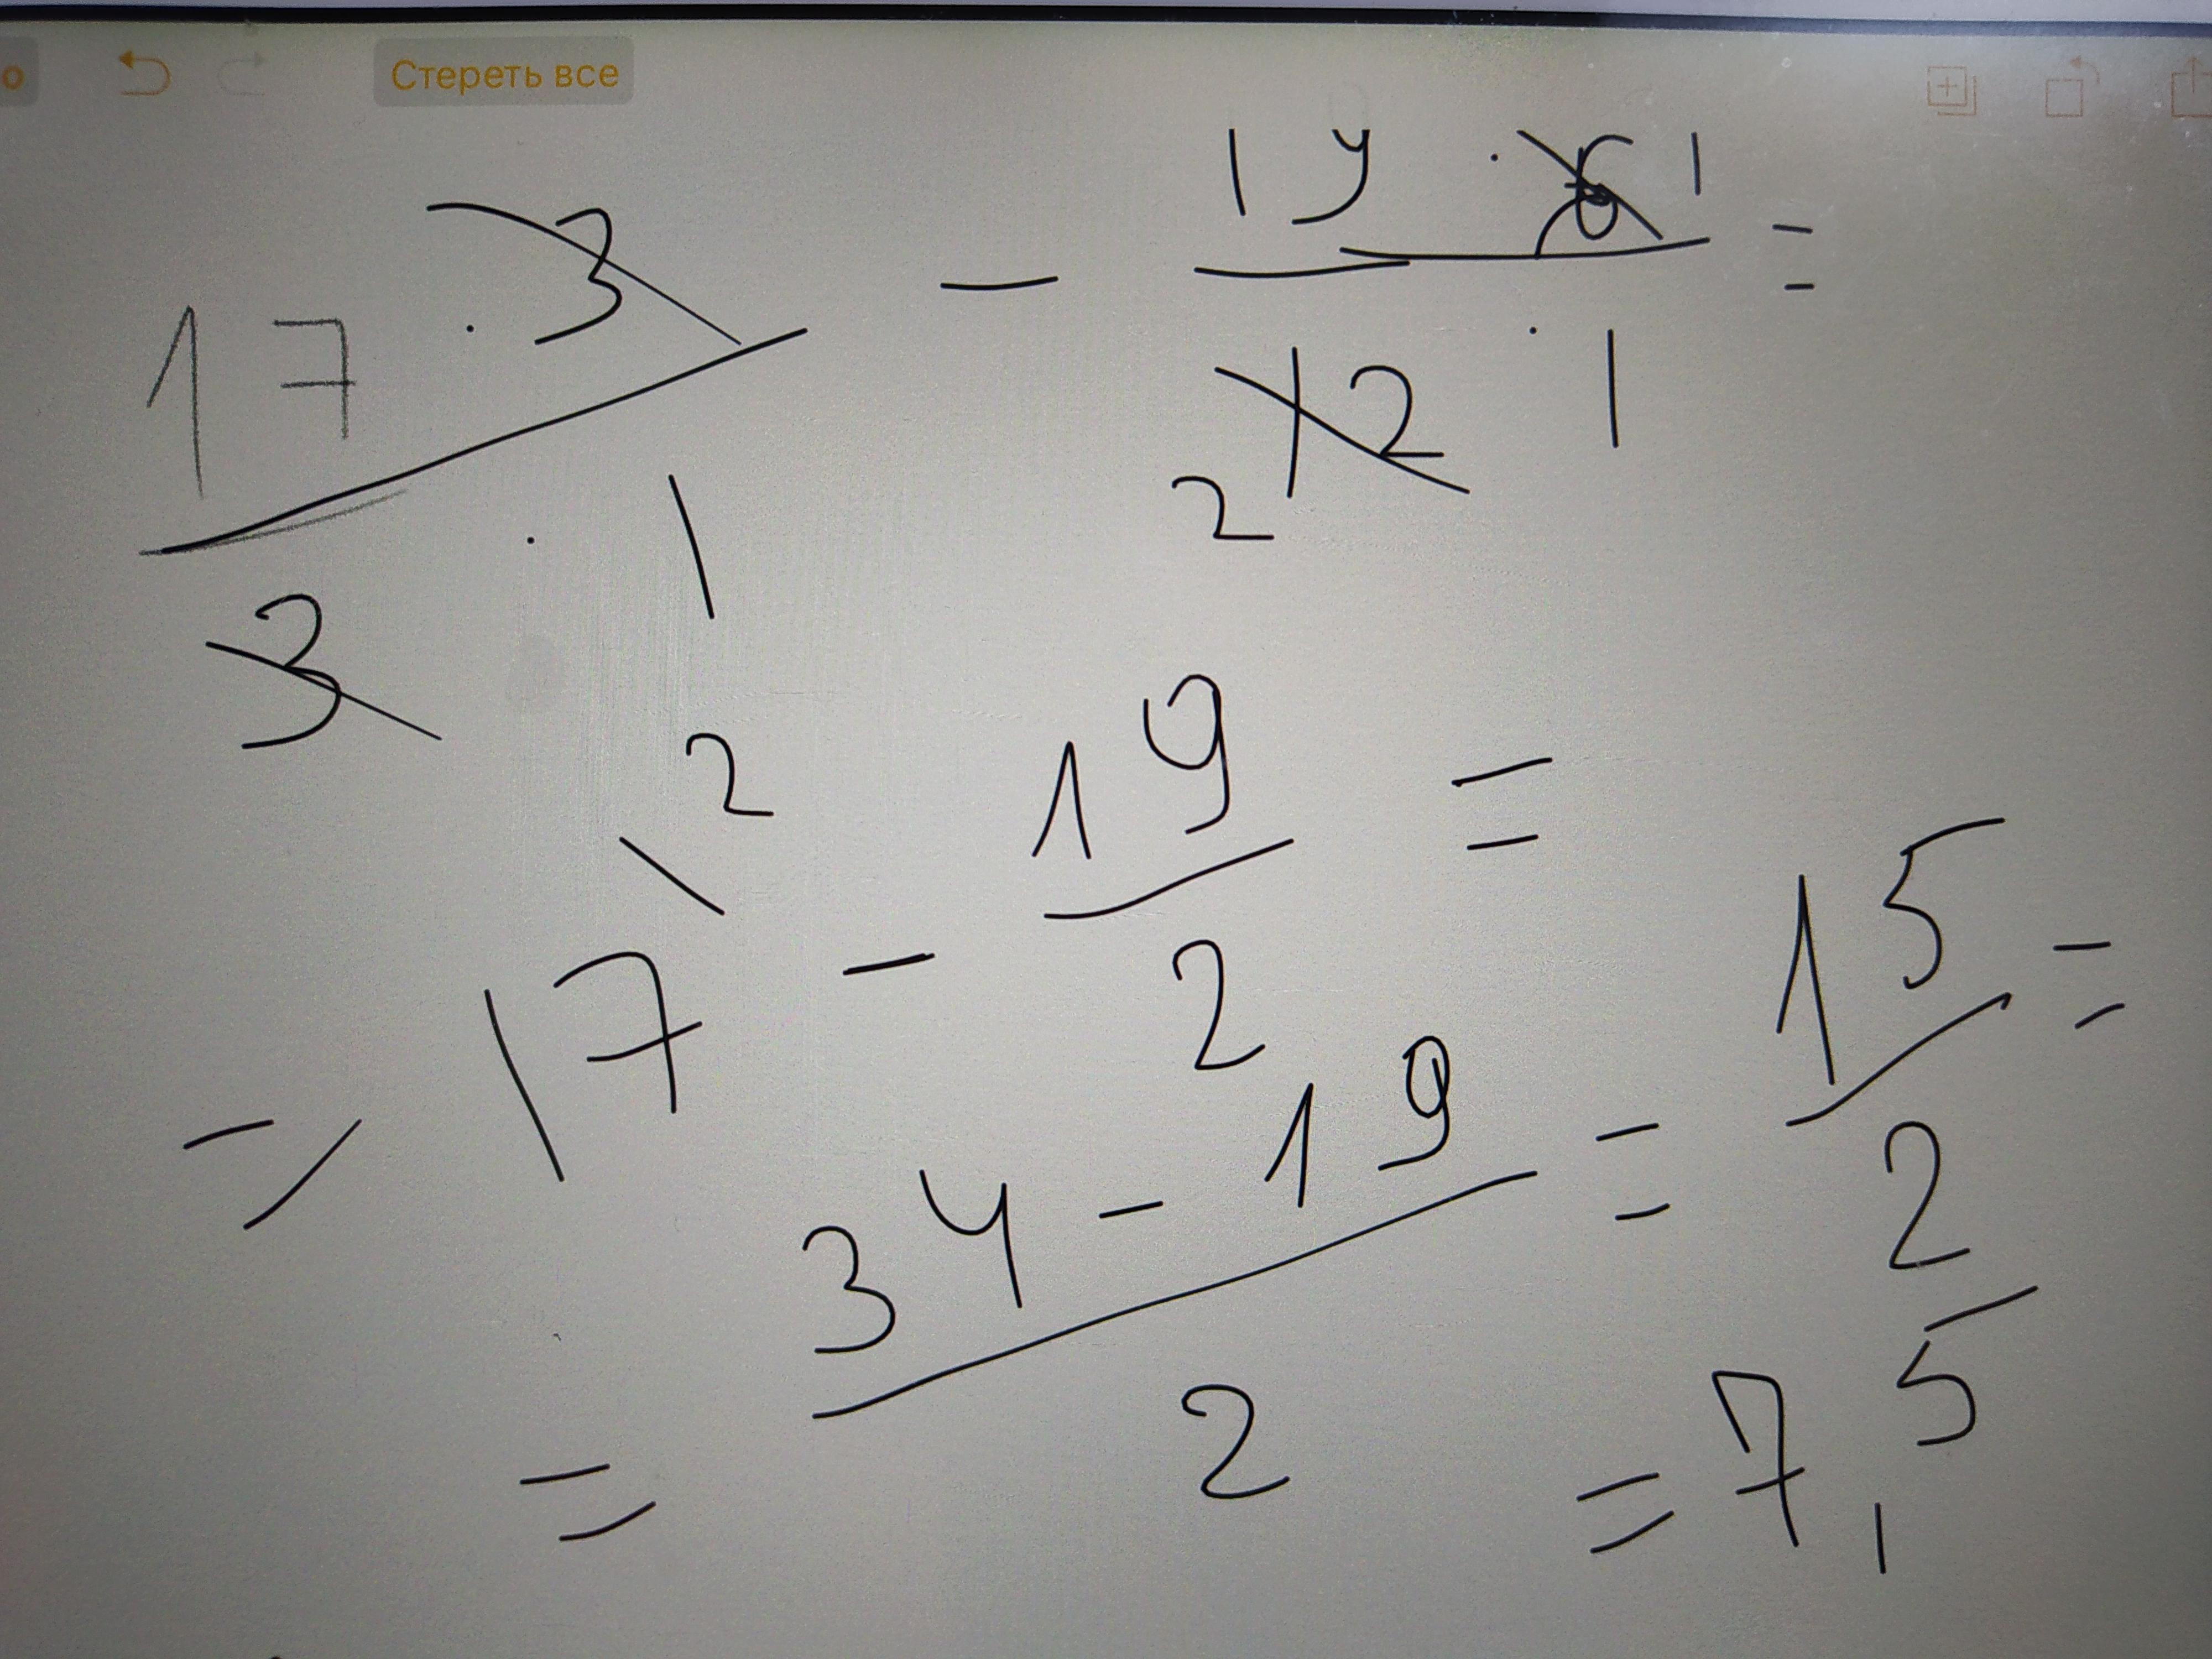 Стереть все
17 · 3 / 3 · 1 − 19 · 6 1 / 12 2 · 1 =
= 17 \ 2 − 19 / 2 =
= 34 − 19 / 2 = 15 / 2 =
= 7,5